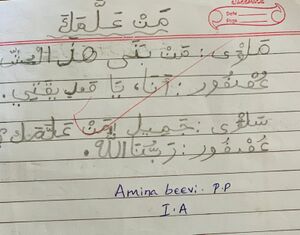 Date
Page
مَنْ عَلَّمَكَ
سَلْوَى : مَنْ بَنَى هٰذَا الْعُشَّ
عُصْفُور : أَنَا، يَا صَدِيقَتِي.
سَلْوَى : جَمِيل! مَنْ عَلَّمَكَ؟
عُصْفُور : رَبُّنَا اللهُ.
Amina beevi. P.P
I.A